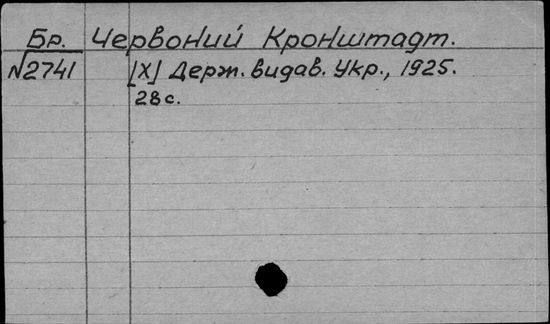 Бр. Червоний Кронштадт.
№2741 [Х] Держ. видав. Укр., 1925.
28с.